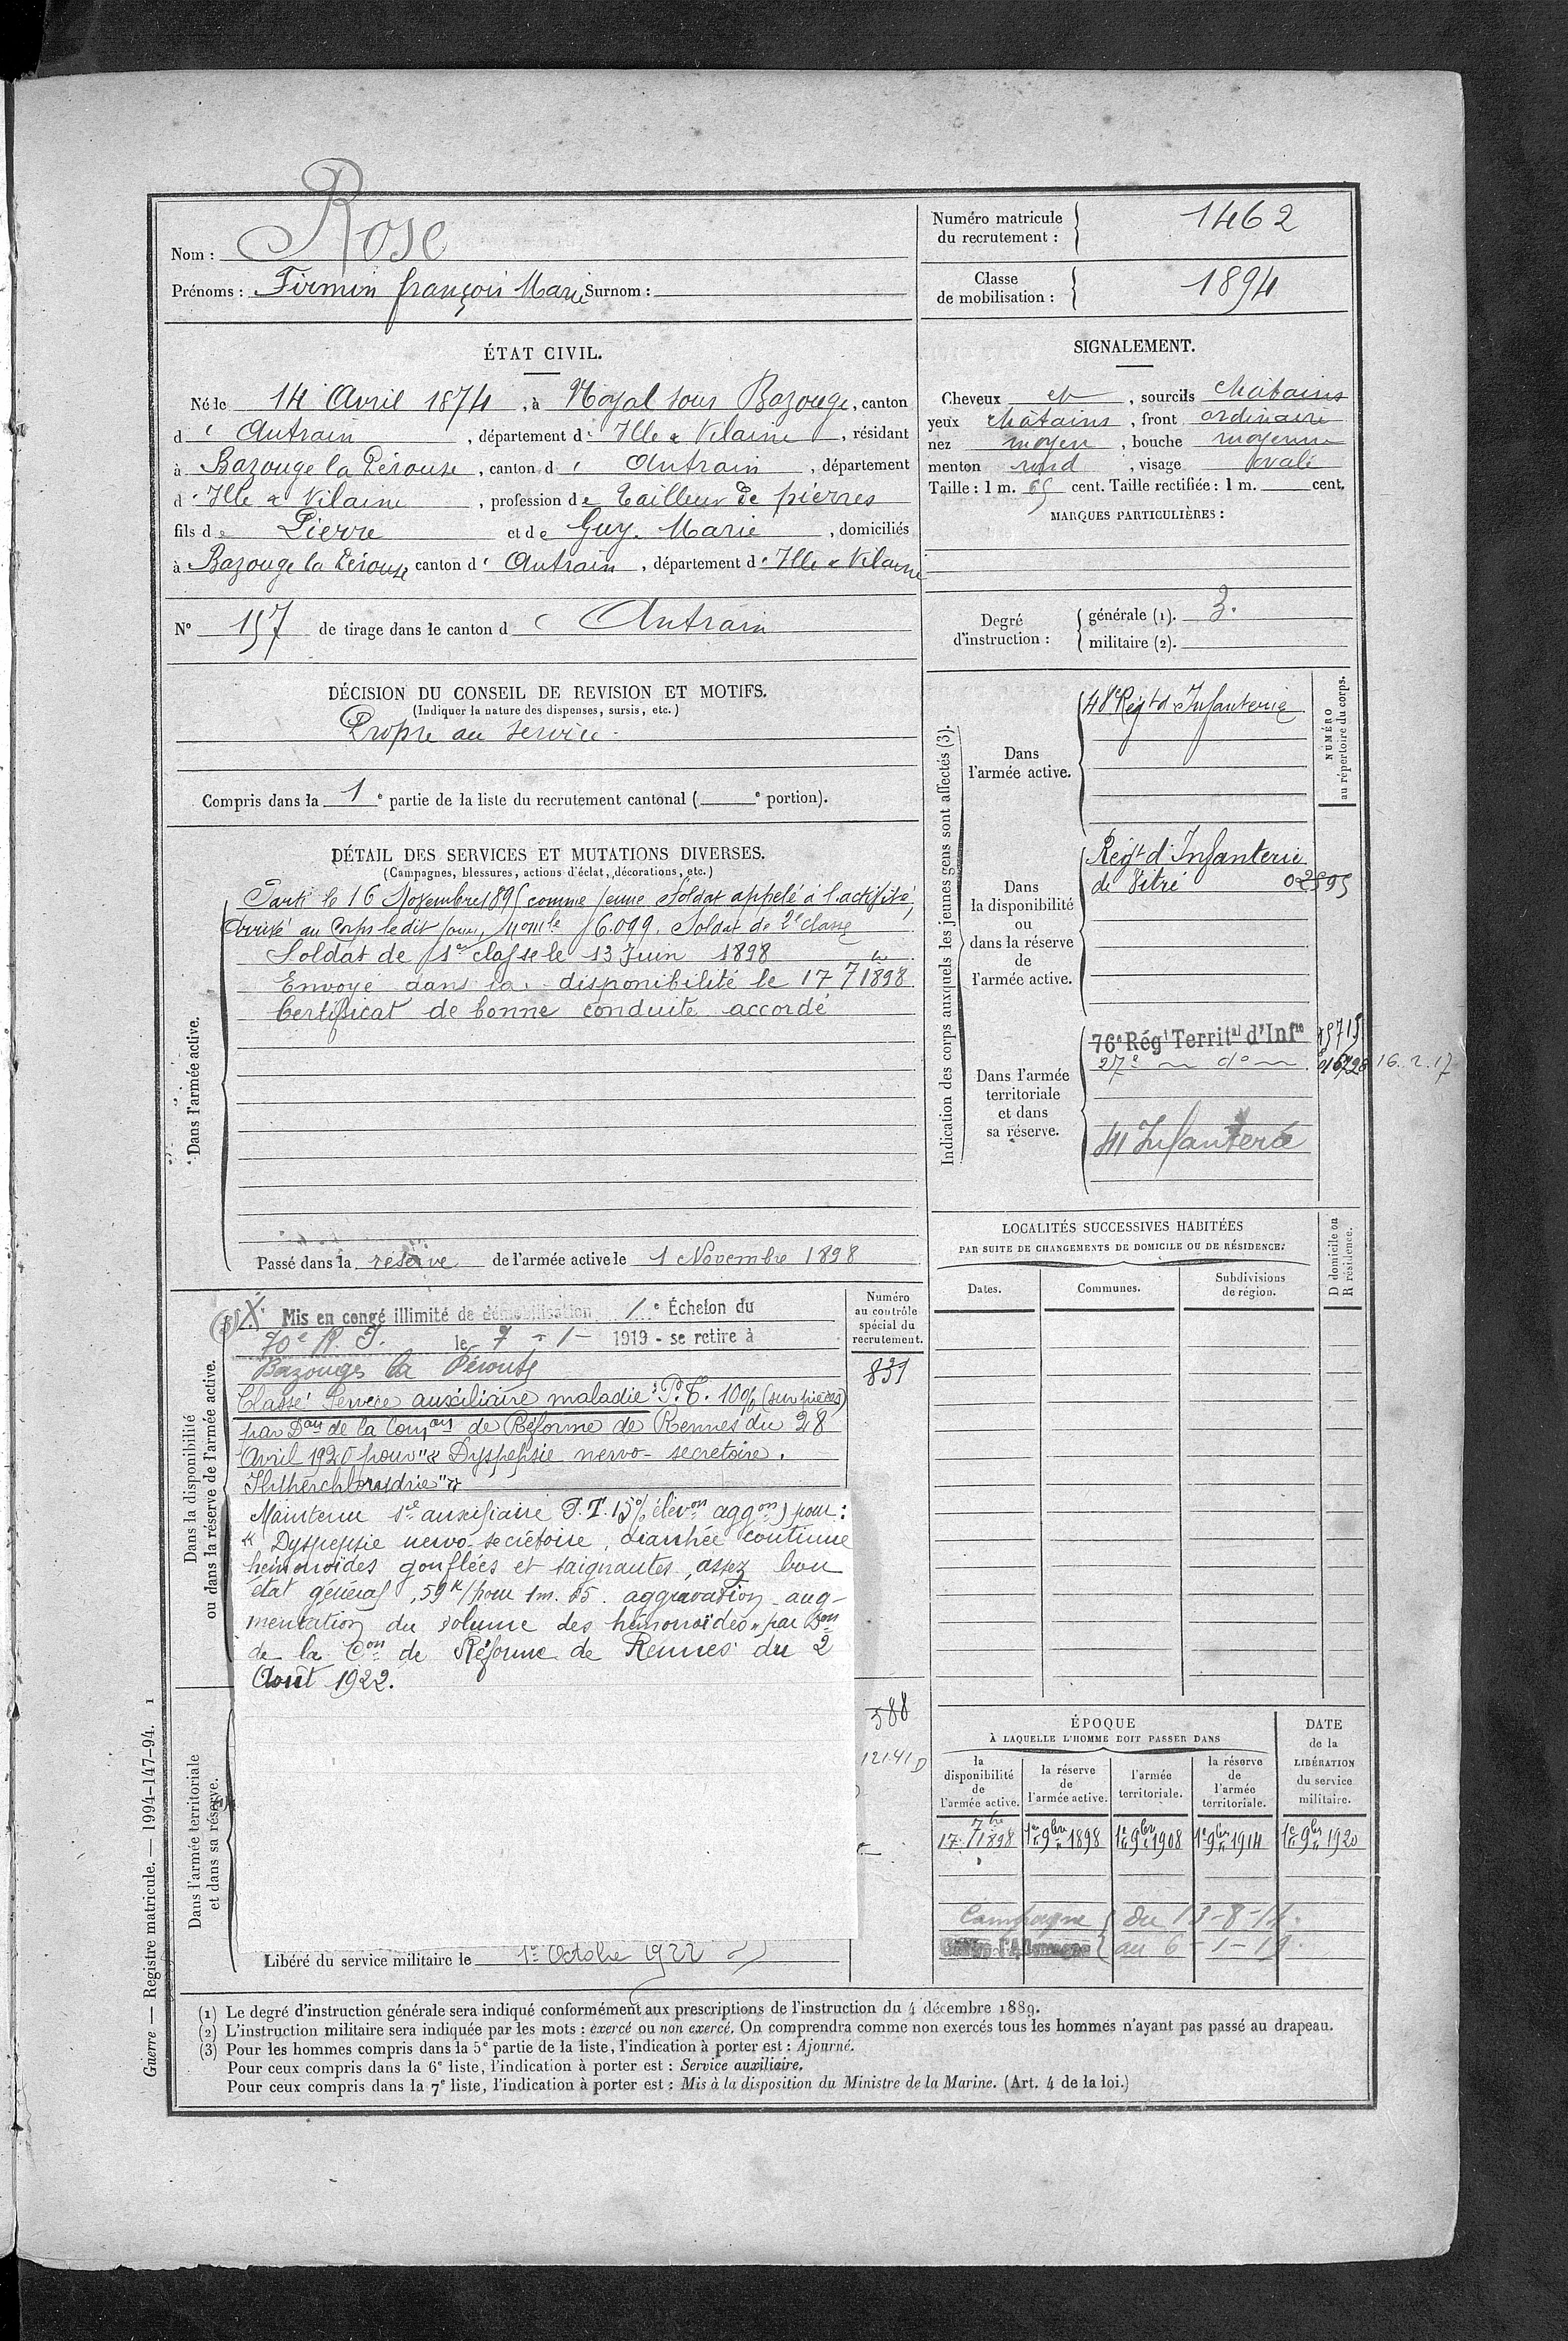 Nom : Rose
Prénoms : Firmin françois Marie Surnom :
Numéro matricule du recrutement : 1462
Classe de mobilisation : 1894
ÉTAT CIVIL.
Né le 14 Avril 1874, à Noyal sous Bazouge, canton
d' Antrain, département d' Ille & Vilaine, résidant
à Bazouge la Pérouse, canton d' Antrain, département
d' Ille & Vilaine, profession de Tailleur de pierres
fils de Pierre et de Guy Marie, domiciliés
à Bazouge la Pérouse canton d' Antrain, département d' Ille & Vilaine
N° 157 de tirage dans le canton d' Antrain
SIGNALEMENT.
Cheveux et, sourcils chatains
yeux chatains, front ordinaire
nez moyen, bouche moyenne
menton rond, visage ovale
Taille : 1 m. 65 cent. Taille rectifiée : 1 m. cent.
MARQUES PARTICULIÈRES :
Degré d'instruction : générale (1). 3.
militaire (2).
DÉCISION DU CONSEIL DE REVISION ET MOTIFS.
(Indiquer la nature des dispenses, sursis, etc.)
Propre au service.
Compris dans la 1e partie de la liste du recrutement cantonal ( e portion).
DÉTAIL DES SERVICES ET MUTATIONS DIVERSES.
(Campagnes, blessures, actions d'éclat, décorations, etc.)
Dans l'armée active.
Parti le 16 Novembre 1895 comme jeune soldat appelé à l'activité,
Arrivé au Corps ledit jour, 6.099. Soldat de 2e classe
Soldat de 1re classe le 13 Juin 1898
Envoyé dans la disponibilité le 17 7bre 1898
Certificat de bonne conduite accordé
Passé dans la réserve de l'armée active le 1 Novembre 1898
Indication des corps auxquels les jeunes gens sont affectés (3).
NUMÉRO au répertoire du corps.
Dans l'armée active.
48e Régt d'Infanterie
Dans la disponibilité ou dans la réserve de l'armée active.
Régt d'Infanterie
de Vitré
Dans l'armée territoriale et dans sa réserve.
76e Régt Territal d'Infie
27e d°
16.2.17
41 Infanterie
LOCALITÉS SUCCESSIVES HABITÉES
PAR SUITE DE CHANGEMENTS DE DOMICILE OU DE RÉSIDENCE.
Dates. Communes. Subdivisions de région. D domicile ou R résidence.
Dans la disponibilité ou dans la réserve de l'armée active.
Numéro au contrôle spécial du recrutement.
839
Mis en congé illimité de démobilisation 1e Échelon du
70e R.I. le 7 - 1 - 1919 - se retire à
Bazouges la Pérouse
Classé Service auxiliaire maladie P.T. 10% (sur pièces)
par Don de la Comon de Réforme de Rennes du 28
Avril 1920 pour "Dyspepsie nervo-secretoire.
Maintenu sce auxiliaire P.T. 15% élevon aggon) pour :
"Dyspepsie nervo-secrétoire, diarrhée continue
hémorroïdes gonflées et saignantes, assez bon
état général, 59k/pour 1m.65. aggravation aug-
mentation du volume des hémorroïdes" par Don
de la Con de Réforme de Rennes du 2
Aout 1922.
Dans l'armée territoriale et dans sa réserve.
588
12141 D
Libéré du service militaire le 1er Octobre 1922
ÉPOQUE
À LAQUELLE L'HOMME DOIT PASSER DANS
la disponibilité de l'armée active.
la réserve de l'armée active.
l'armée territoriale.
la réserve de l'armée territoriale.
DATE de la LIBÉRATION du service militaire.
17 7bre 1898 1er 9bre 1898 1er 9bre 1908 1er 9bre 1914 1er 9bre 1920
Campagne du 13-8-14
au 6-1-19
Guerre — Registre matricule. — 1994-147-94. 1
(1) Le degré d'instruction générale sera indiqué conformément aux prescriptions de l'instruction du 4 décembre 1889.
(2) L'instruction militaire sera indiquée par les mots : exercé ou non exercé. On comprendra comme non exercés tous les hommes n'ayant pas passé au drapeau.
(3) Pour les hommes compris dans la 5e partie de la liste, l'indication à porter est : Ajourné.
Pour ceux compris dans la 6e liste, l'indication à porter est : Service auxiliaire.
Pour ceux compris dans la 7e liste, l'indication à porter est : Mis à la disposition du Ministre de la Marine. (Art. 4 de la loi.)